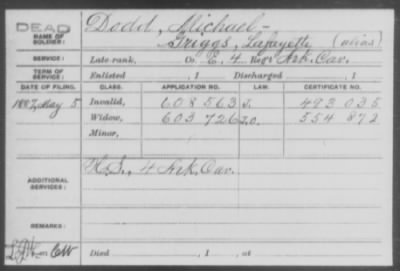 DEAD
NAME OF SOLDIER:
Dodd, Michael-
Griggs, Lafayette (alias)
SERVICE:
Late rank, Co. E, 4 Reg't Ark. Cav.
TERM OF SERVICE:
Enlisted , 1 Discharged , 1
DATE OF FILING. CLASS. APPLICATION NO. LAW. CERTIFICATE NO.
1887, May 5 Invalid, 608 563 J. 493 035
Widow, 603 726 J.O. 554 872
Minor,
ADDITIONAL SERVICES:
H.S., 4 Ark. Cav.
REMARKS:
Died , 1 , at